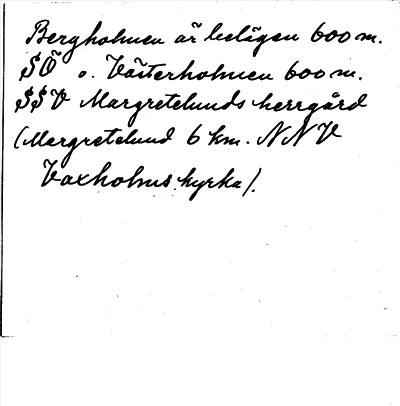 Bergholmen är belägen 600 m.
SÖ o. Västerholmen 600 m.
SSV Margretelunds herrgård
(Margretelund 6 km. NNV
Vaxholms kyrka).